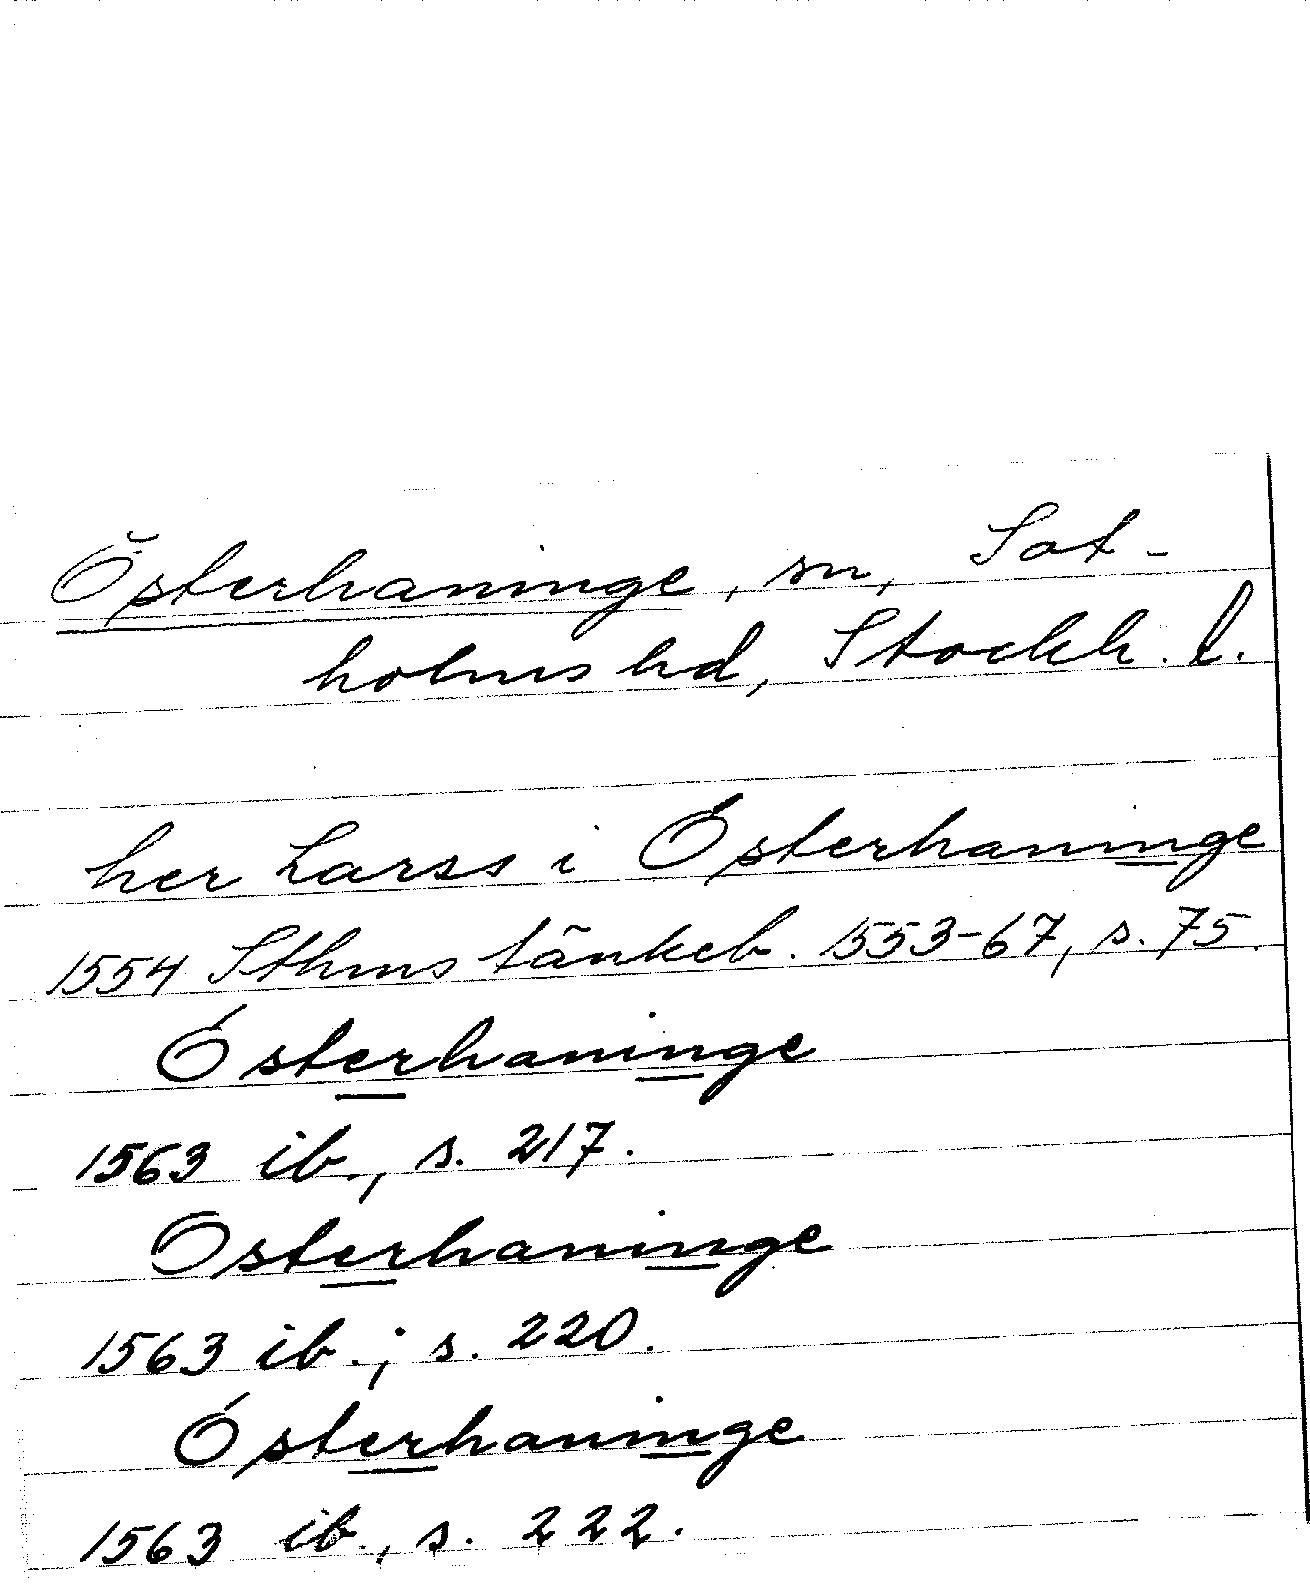 Österhaninge, sn, Sot-
holms hd, Stockh. l.
her Larss i Ósterhaninge
1554 Sthms tänkeb. 1553-67, s. 75.
Ósterhaninge
1563 ib., s. 217.
Osterhaninge
1563 ib., s. 220.
Ósterhaninge
1563 ib., s. 222.